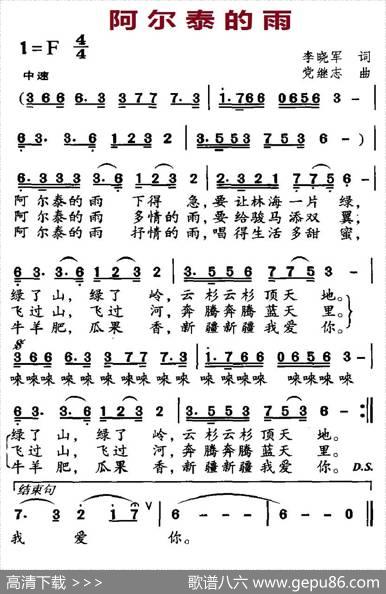 阿尔泰的雨
1=F 4/4
李晓军 词
中速
党继志 曲
(3 6 6 6. 3 3 7 7 7. 3 | i. 7 6 6 0 6 5 6 3 - |
6 3. 3. 6 1 2 3 2 | 3. 5 5 5 7 5 3 6 -) |
6. 3 3 3 3. 5 3 2 3 | i. 7 6 6 0 6 5 6 3 - |
阿尔泰的雨 下得 急,要让林海一片 绿,
阿尔泰的雨 多情的雨,要给骏马添双 翼,
阿尔泰的雨 抒情的雨,唱得生活多甜 蜜,
6 3. 3. 6 1 2 3 2 | 3. 5 5 5 6 7 7 5 3 - |
绿了 山, 绿了 岭, 云杉云杉 顶天 地。
飞过 山, 飞过 河, 奔腾奔腾 蓝天 里。
牛羊 肥, 瓜果 香, 新疆新疆 我爱 你。
3 6 6 6. 3 3 7 7 7. 3 | i. 7 6 6 0 6 5 6 3 - |
唻唻唻唻 唻唻唻唻唻 唻 唻唻唻唻唻唻唻
6 3. 3. 6 1 2 3 2 | 3. 5 5 5 7 5 3 6 - :||
绿了 山, 绿了 岭, 云杉云杉顶天 地。
飞过 山, 飞过 河, 奔腾奔腾蓝天 里。
牛羊 肥, 瓜果 香, 新疆新疆我爱 你。 D.S.
结束句
7. 3 2 i 7 ∨ 6 - - - | 6 - - - ||
我 爱 你。
高清下载 >>> 歌谱八六 www.gepu86.com